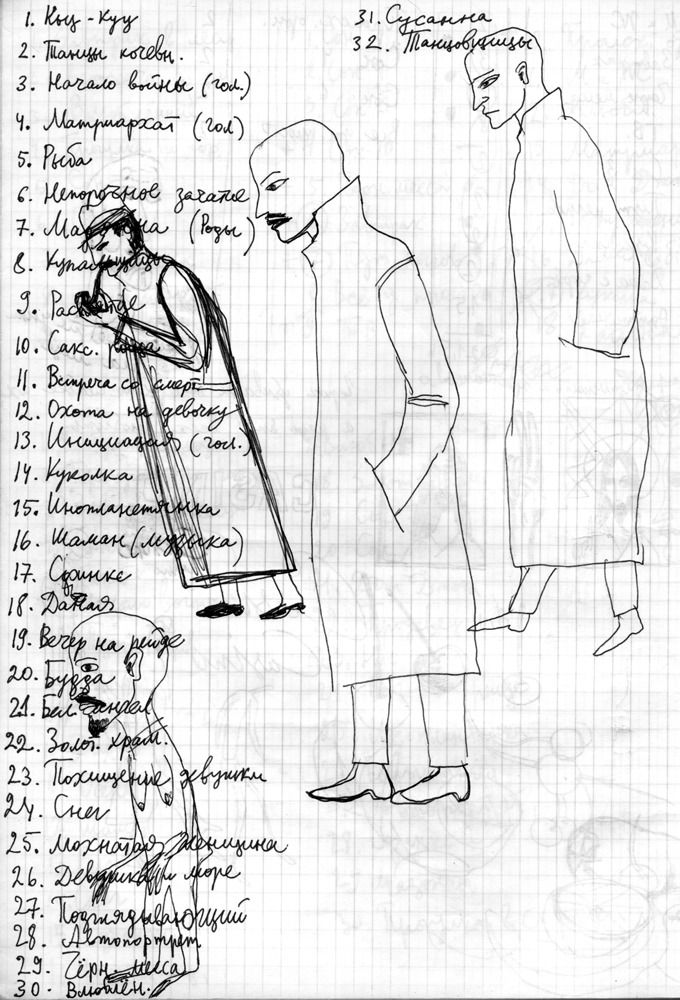 1. Кыз-куу
2. Танцы кочевн.
3. Начало войны (гол.)
4. Матриархат (гол)
5. Рыба
6. Непорочное зачатие
7. (Роды)
8. Купальщицы
9.
10. Сакс. роща
11. Встреча со смерт.
12. Охота на девочку
13. Инициация (гол.)
14. Куколка
15. Инопланетянка
16. Шаман (музыка)
17. Сфинкс
18. Даная
19. Вечер на рейде
20. Будда
21. Бел. ангел
22. Золот. храм.
23. Похищение девушки
24. Снег
25. Мохнатая женщина
26. Девушка и море
27. Подглядывающий
28. Автопортрет
29. Чёрн. месса
30. Влюблён.
31. Сусанна
32. Танцовщицы